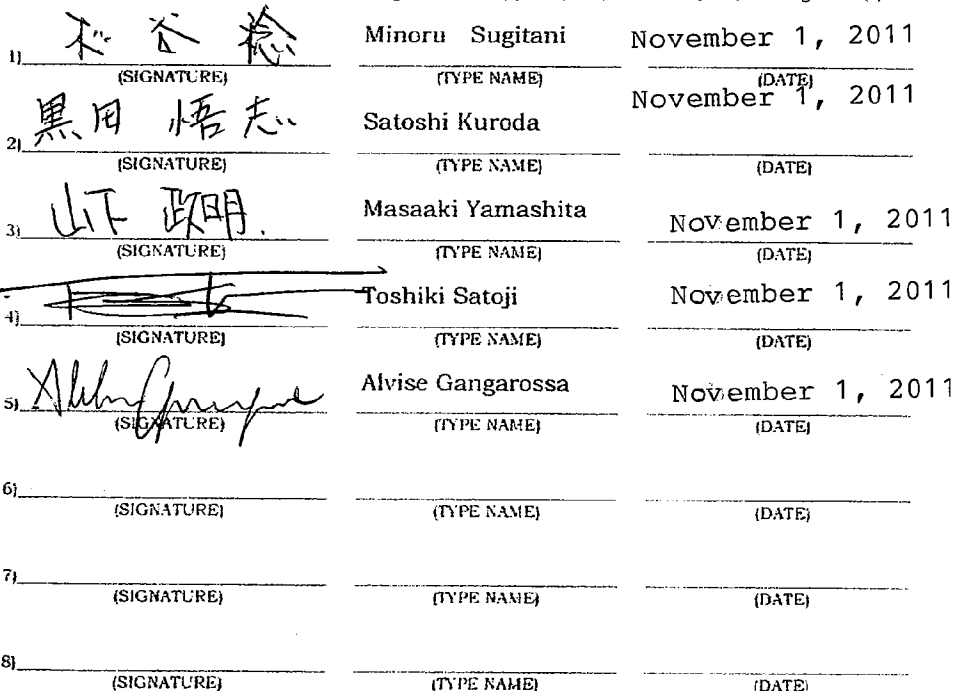 1) 杉谷 稔 Minoru Sugitani November 1, 2011
(SIGNATURE) (TYPE NAME) (DATE)
2) 黒田 悟志 Satoshi Kuroda November 1, 2011
(SIGNATURE) (TYPE NAME) (DATE)
3) 山下 政明. Masaaki Yamashita November 1, 2011
(SIGNATURE) (TYPE NAME) (DATE)
4) Toshiki Satoji November 1, 2011
(SIGNATURE) (TYPE NAME) (DATE)
5) Alvise Gangarossa November 1, 2011
(SIGNATURE) (TYPE NAME) (DATE)
6)
(SIGNATURE) (TYPE NAME) (DATE)
7)
(SIGNATURE) (TYPE NAME) (DATE)
8)
(SIGNATURE) (TYPE NAME) (DATE)